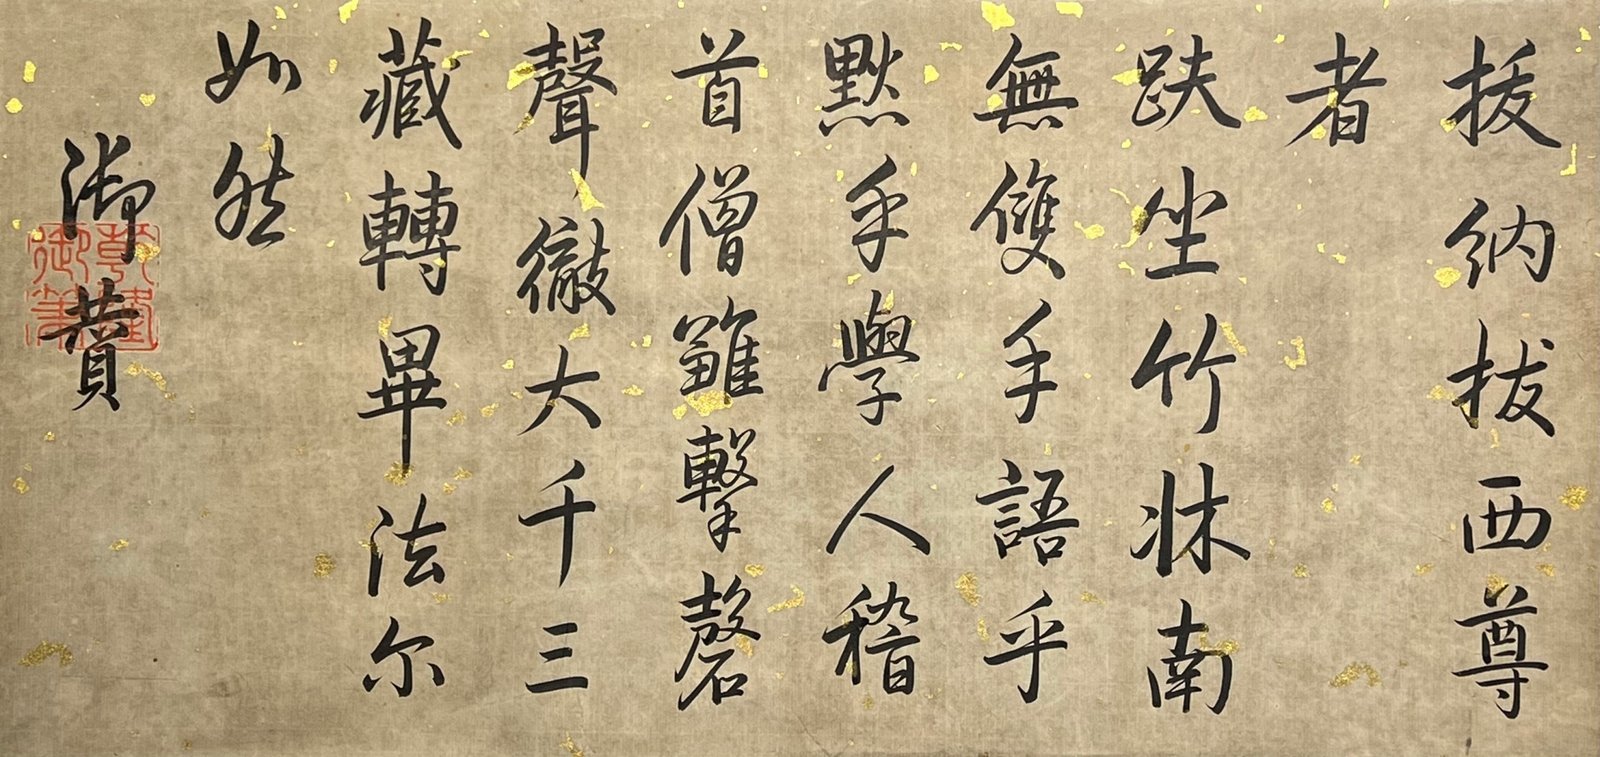 拔納拔西尊
者
趺坐竹牀南
無雙手語乎
默乎學人稽
首僧雖擊磬
聲徹大千三
藏轉畢法尔
如然
御贊
乾隆
御筆